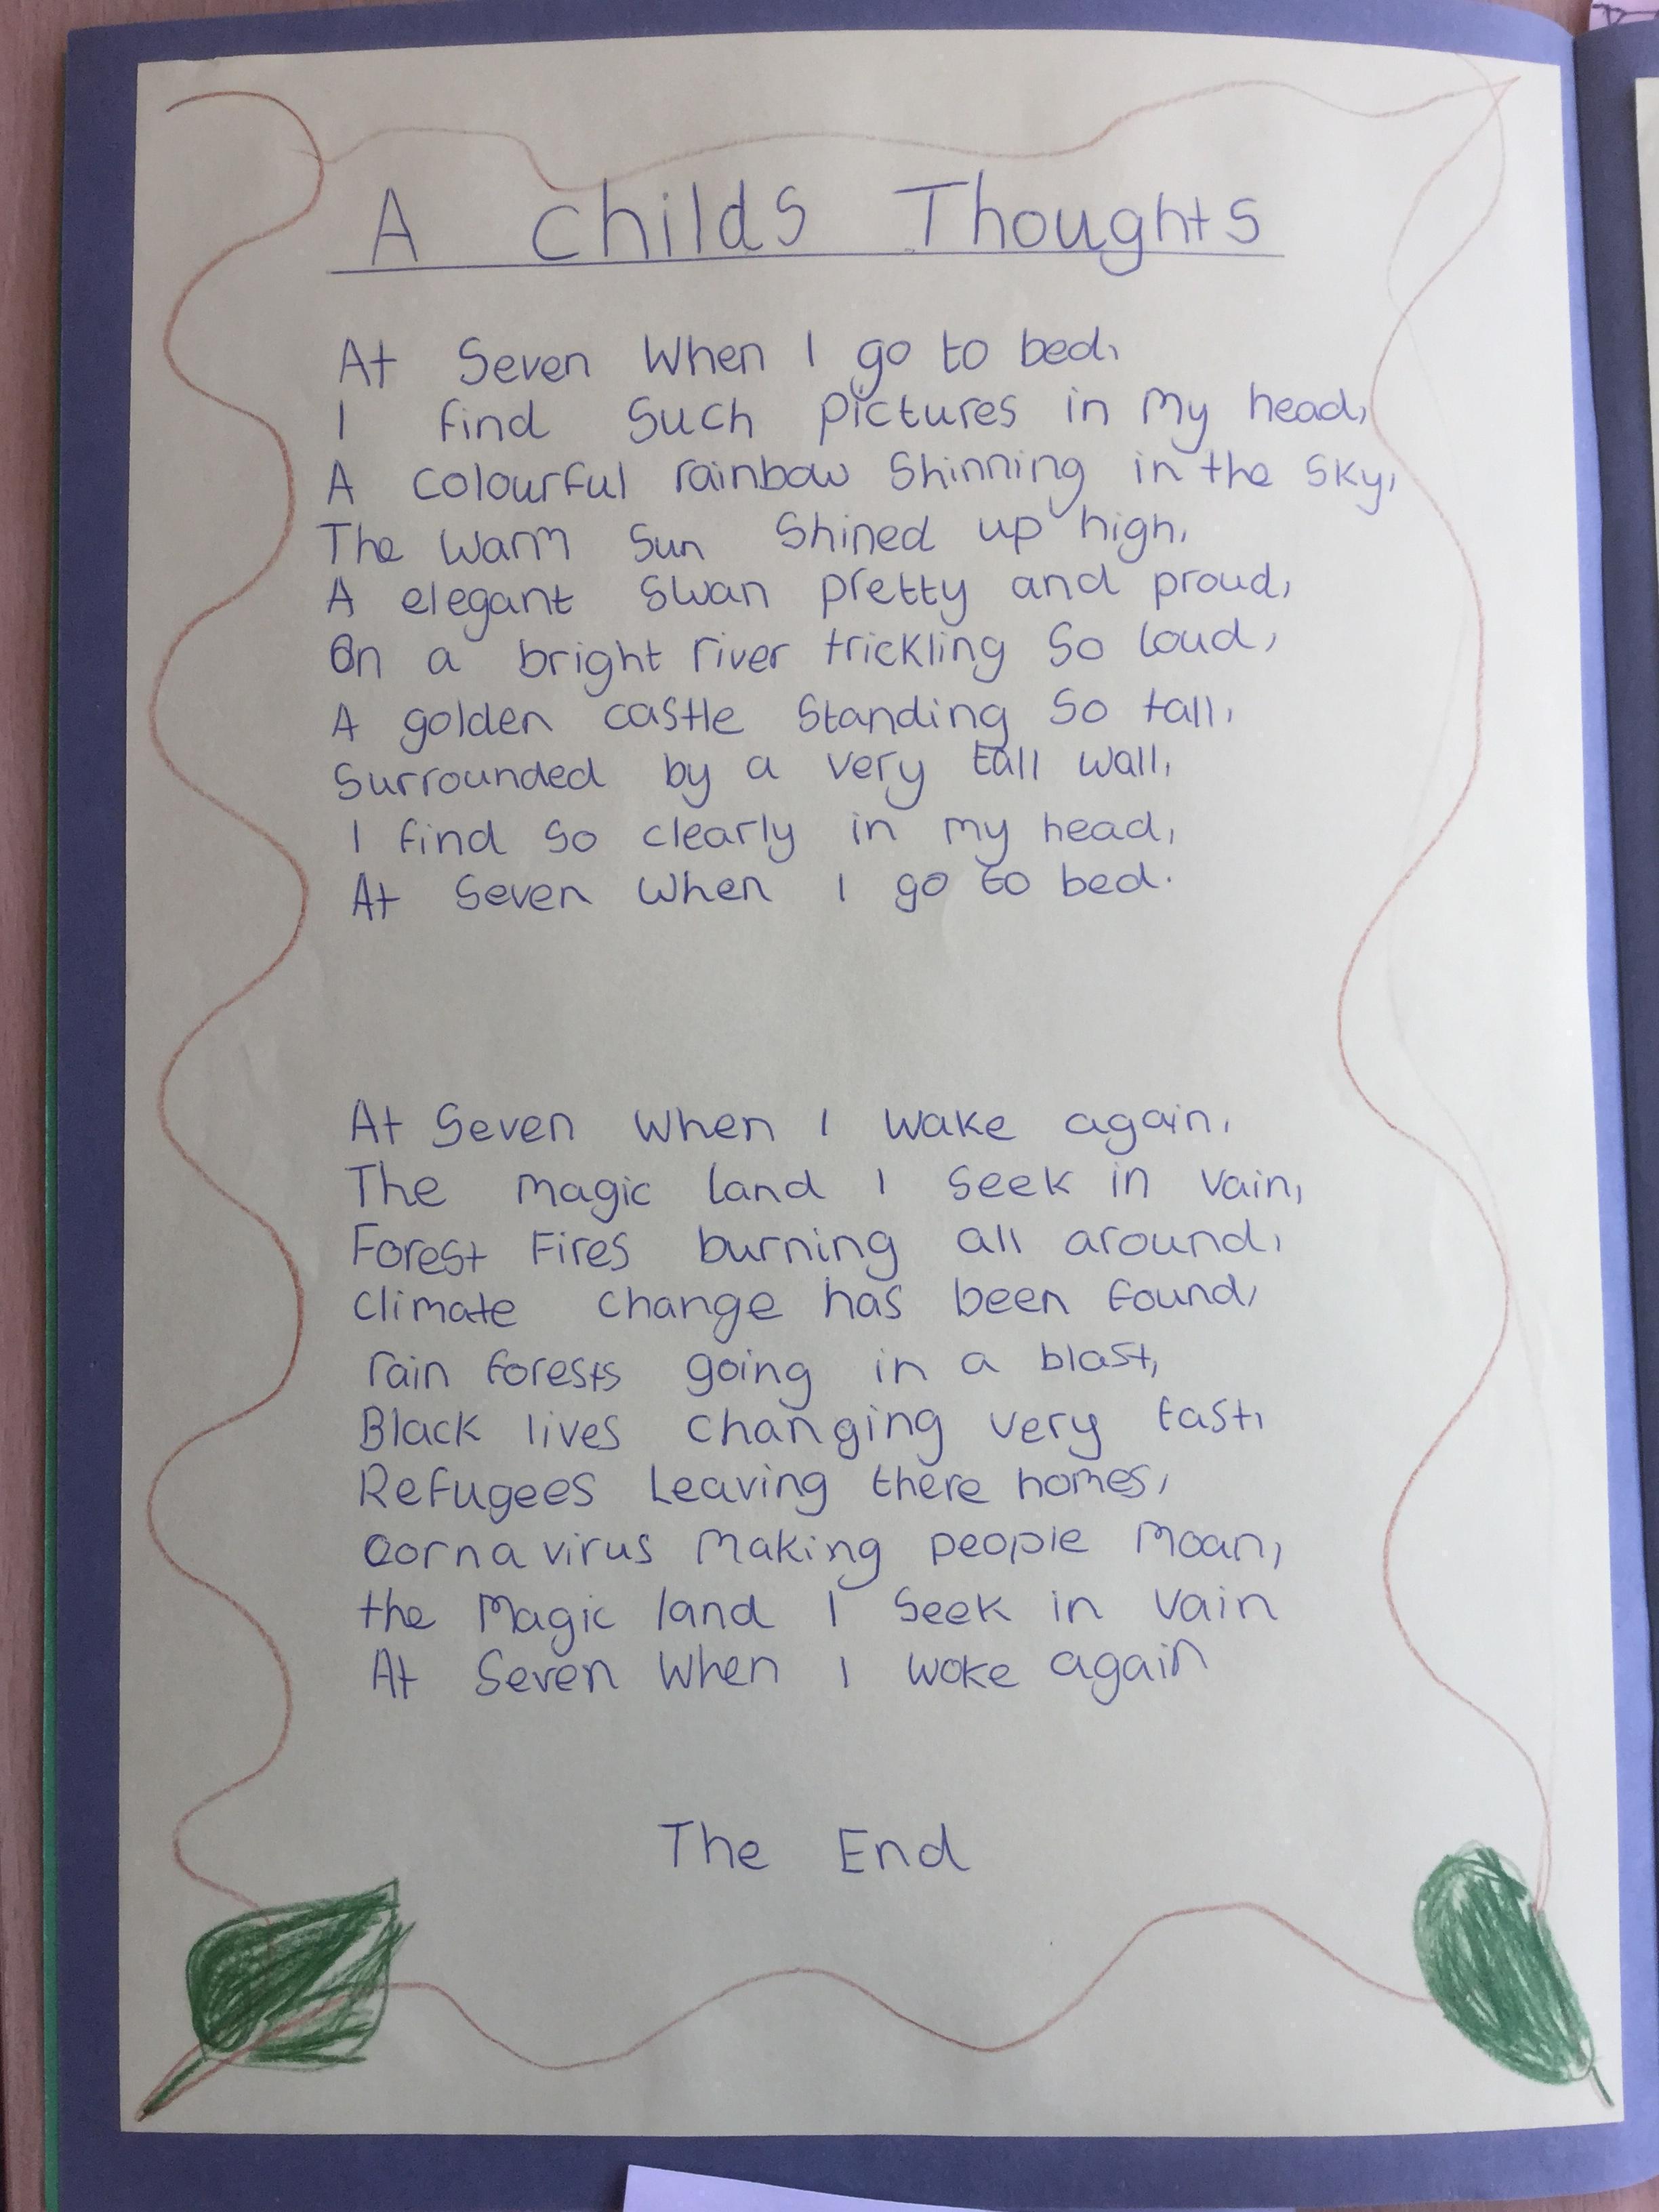 A childs Thoughts
At Seven When I go to bed,
I find Such Pictures in My head,
A colourful rainbow Shinning in the Sky,
The Warm Sun Shined up high,
A elegant Swan pretty and proud,
On a bright river trickling So loud,
A golden castle Standing So tall,
Surrounded by a very tall wall,
I find So clearly in my head,
At Seven When I go to bed.
At Seven When I wake again,
The magic land I Seek in vain,
Forest Fires burning all around,
Climate change has been found,
rain forests going in a blast,
Black lives changing very fast,
Refugees Leaving there homes,
Cornavirus Making people Moan,
the Magic land I Seek in Vain
At Seven When I woke again
The End